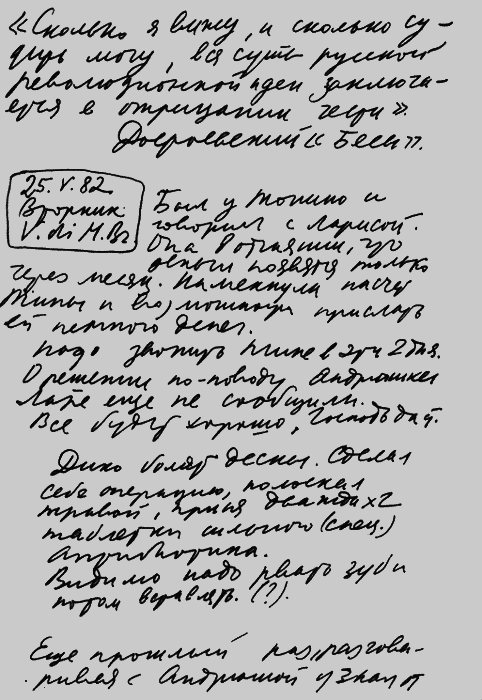 «Сколько я вижу, и сколько су-
дить могу, вся суть русской
революционной идеи заключа-
ется в отрицании чести».
Достоевский «Бесы».
25.V.82.
Вторник
V. di M.Br.
Был у Тонино и
говорил с Ларисой.
Она в отчаянии, что
деньги появятся только
через месяц. Намекнули насчет
Тины и возможности прислать
ей немного денег.
Надо звонить Тине в эти 2 дня.
О решении по-поводу Андрюшки
Ларе еще не сообщили.
Все будет хорошо, Господь даст.
Дико болят десны. Сделал
себе операцию, полоскал
травой, принял дважды х2
таблетки сильного (спец.)
Антибиотика.
Видимо надо рвать зубы
потом вставлять. (?).
Еще прошлый раз, разгова-
ривая с Андрюшой узнал от